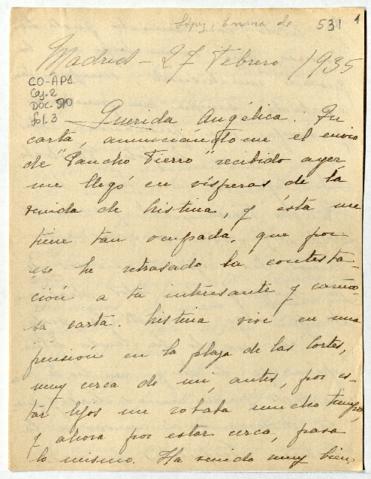 López, Emma de
531 1
Madrid - 27 Febrero 1935
CO-AP1
Caj. 2
Doc. 510
fol. 3
Querida Angélica. Tu
carta, anunciándome el envio
de "Pancho Fierro" recibido ayer
me llegó en vísperas de la
venida de Cristina, y ésta me
tiene tan ocupada, que por
eso he retrasado la contesta-
ción a tu interesante y cariño-
sa carta. Cristina vive en una
pensión en la plaza de las Cortes,
muy cerca de mi, antes, por es-
tar lejos me robaba mucho tiempo,
y ahora por estar cerca, pasa
lo mismo. Ha venido muy bien,